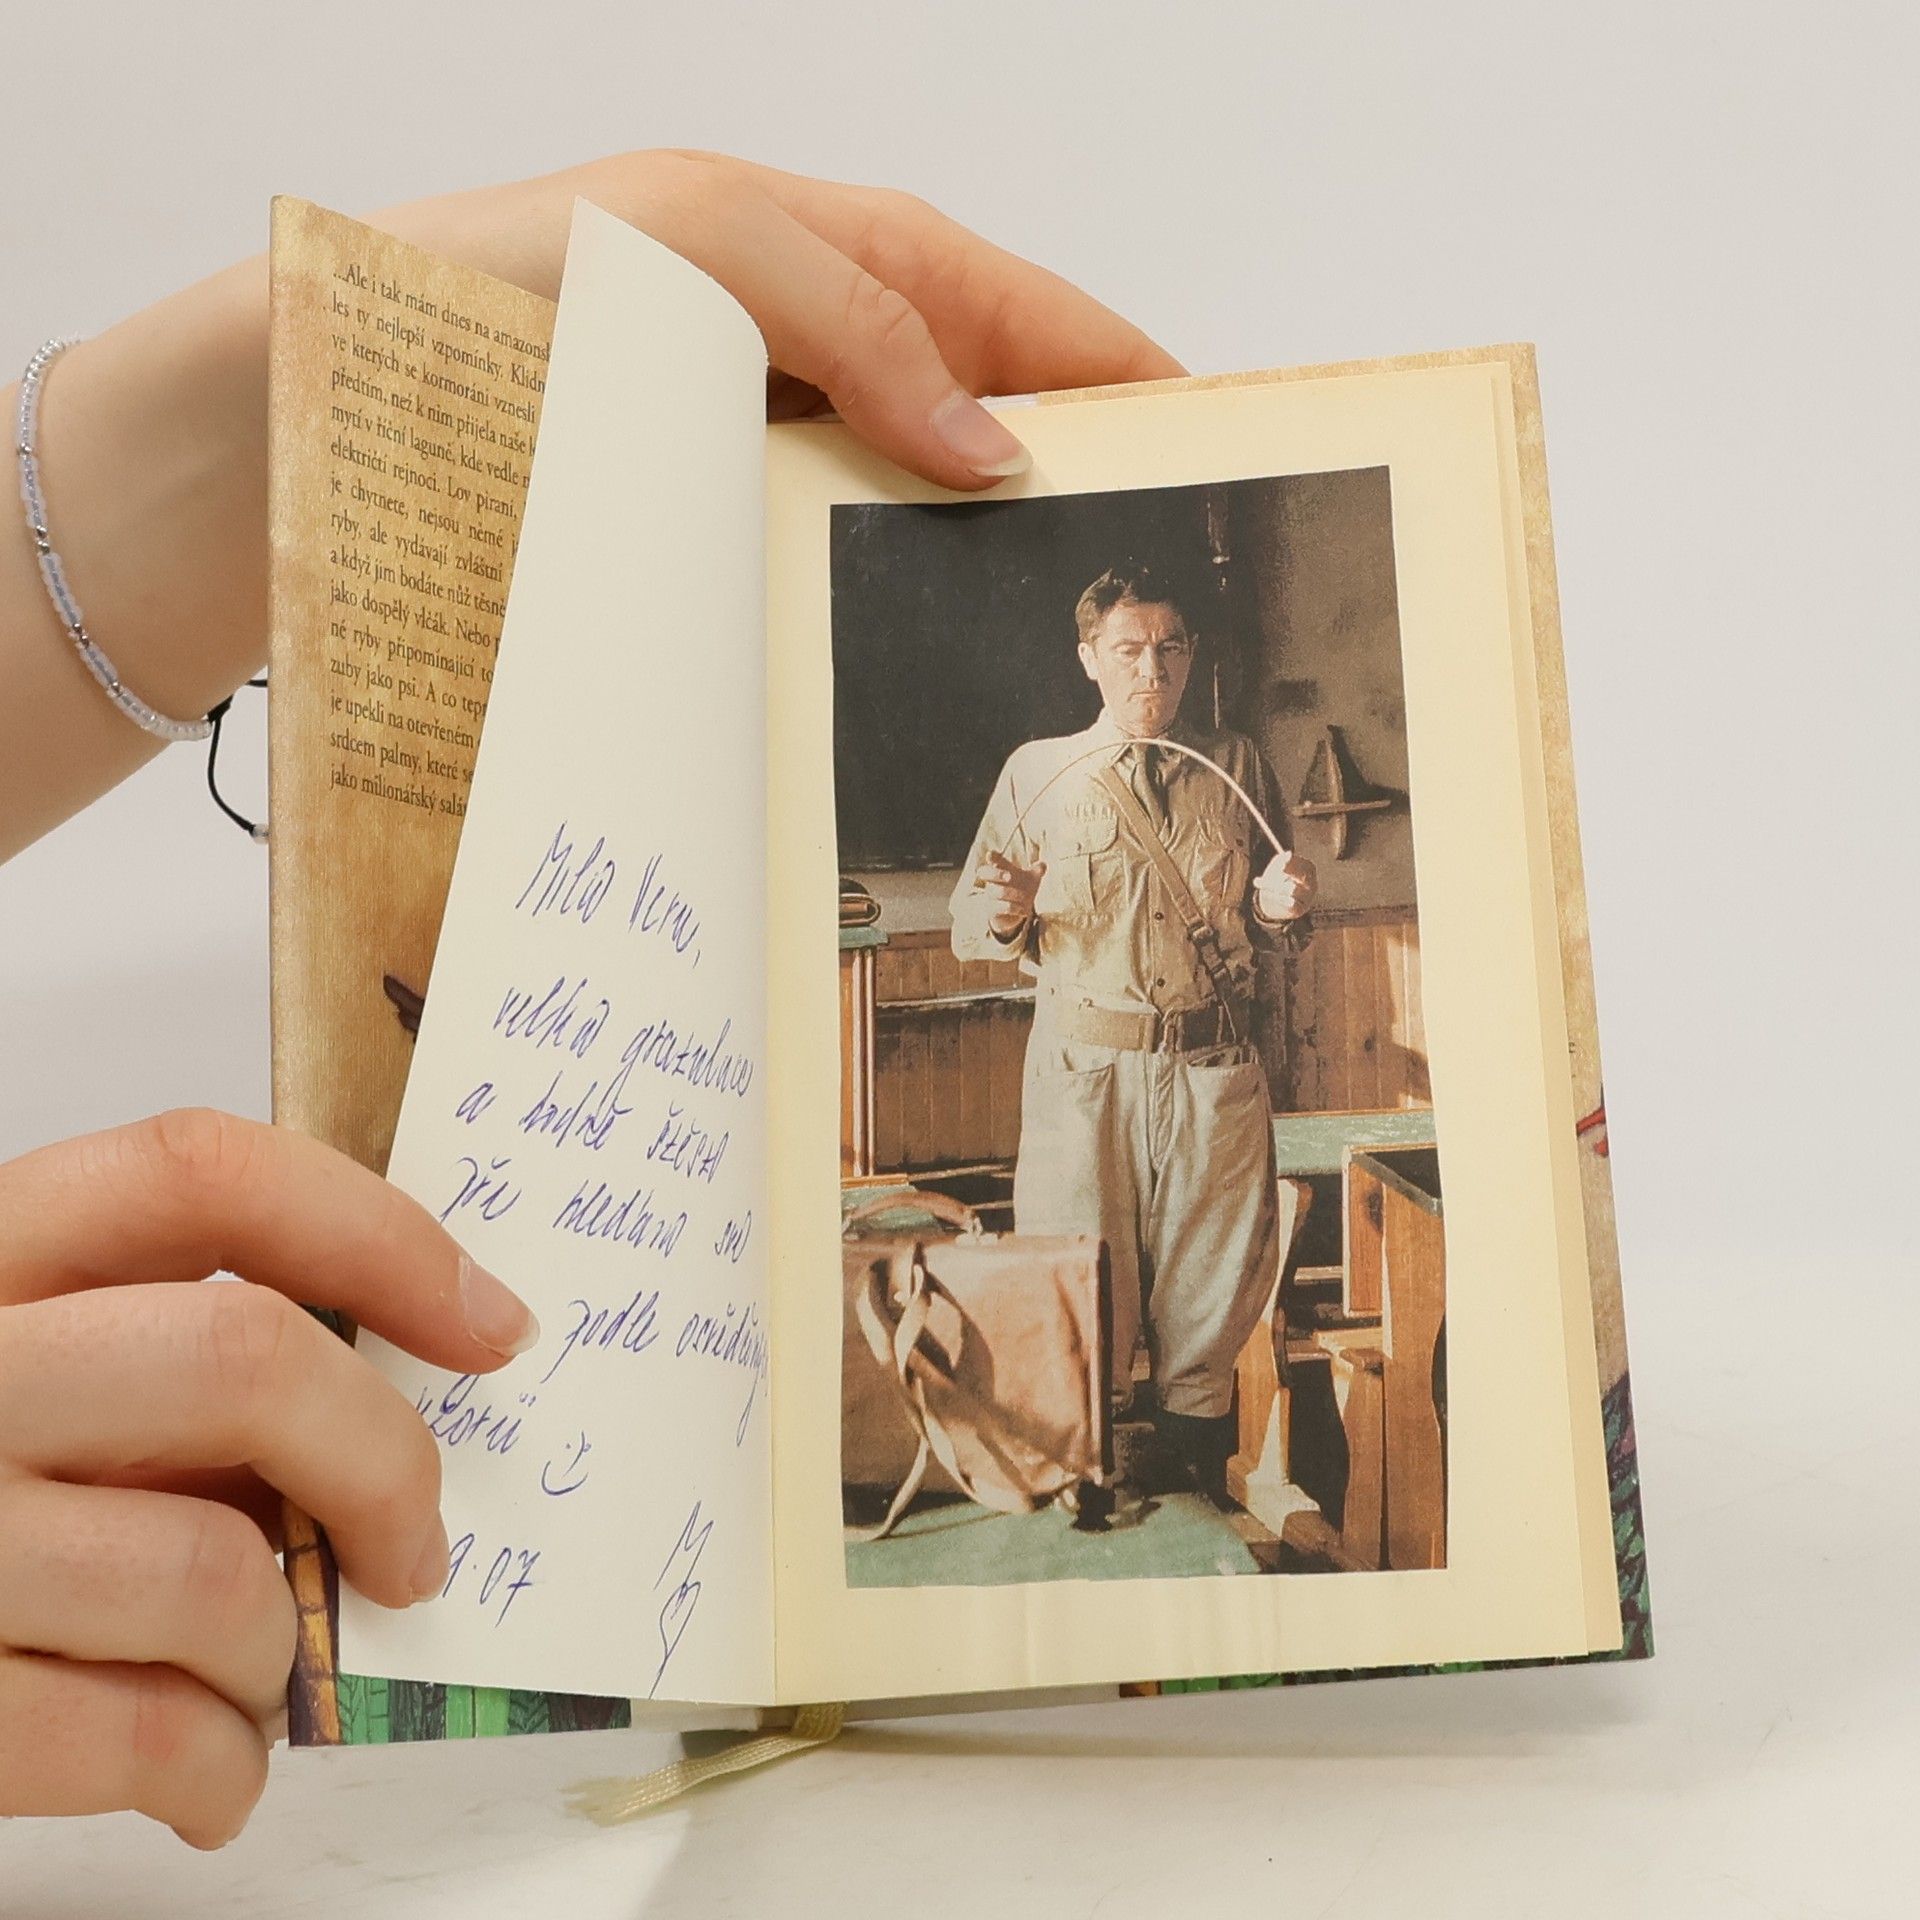 ...Ale i tak mám dnes na
les ty nejlepší vzpomínky.
ve kterých se kormoráni vznesli
předtím, než k nim přijela naše
mytí v říční laguně, kde vedle
električtí rejnoci. Lov piraní,
je chytnete, nejsou němé
ryby, ale vydávají zvláštní
a když jim bodáte nůž těsně
jako dospělý vlčák. Nebo
né ryby připomínající
zuby jako psi. A co
je upekli na otevřeném
srdcem palmy, které
jako milionářský
Milá Veru,
velká gratulace
a hodně štěstí
při hledání
podle
vzorů
9.07
M